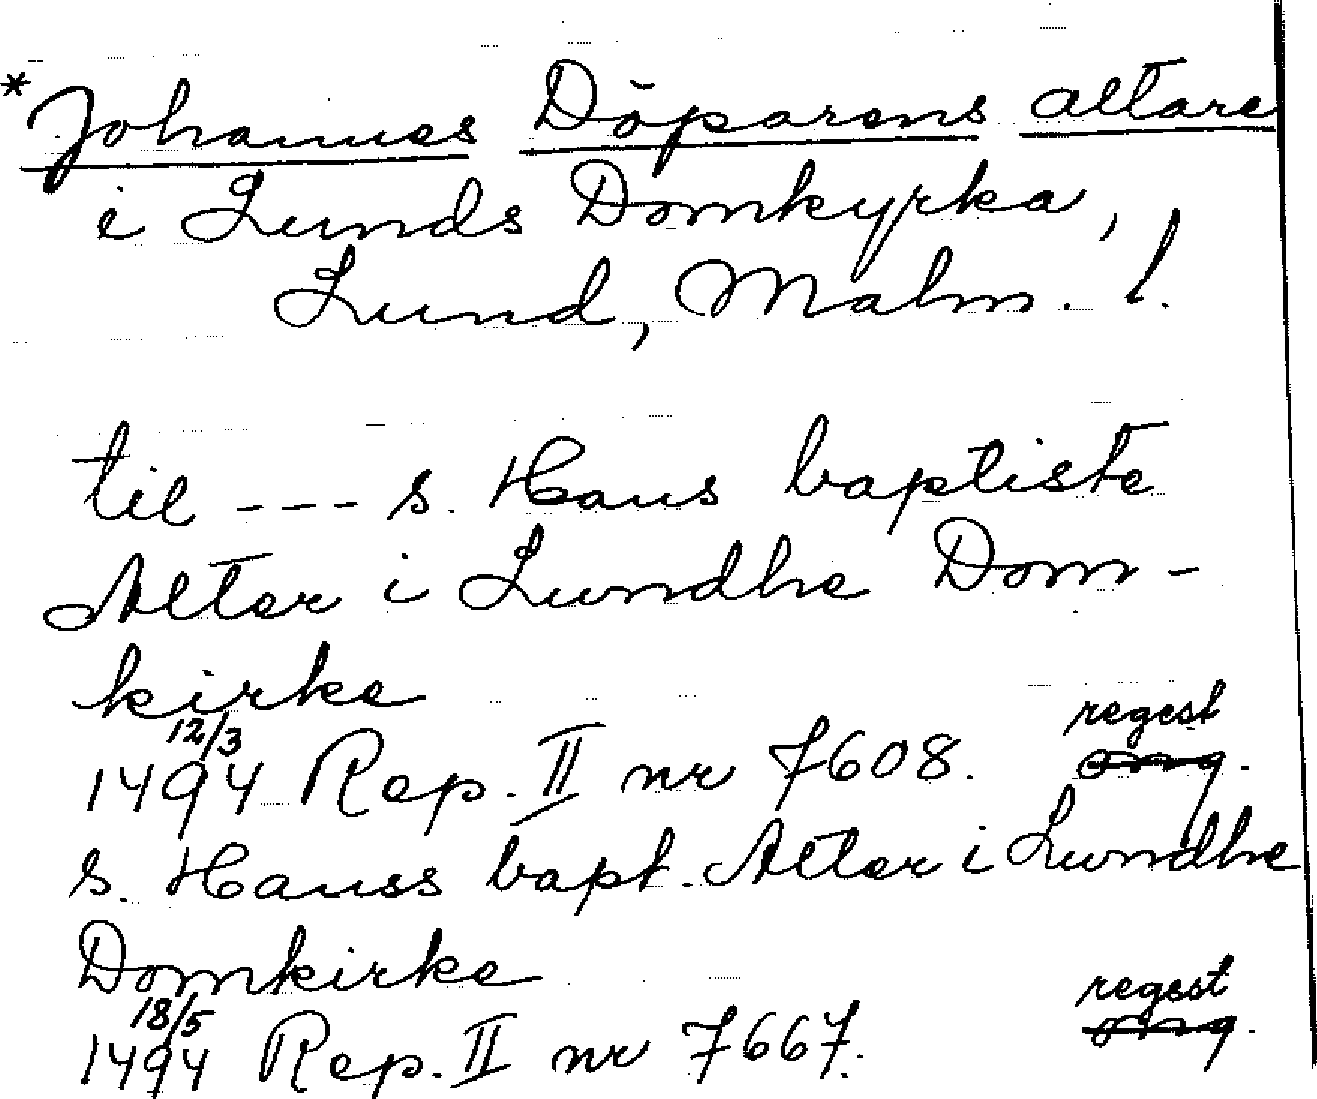 * Johannes Döparens altare
i Lunds Domkyrka,
Lund, Malm. l.
til --- s. Hans baptiste
Alter i Lundhe Dom-
kirke
12/3
1494 Rep. II nr 7608. regest
omg.
s. Hanss bapt. Alter i Lundhe
Domkirke
18/5
1494 Rep. II nr 7667. regest
omg.